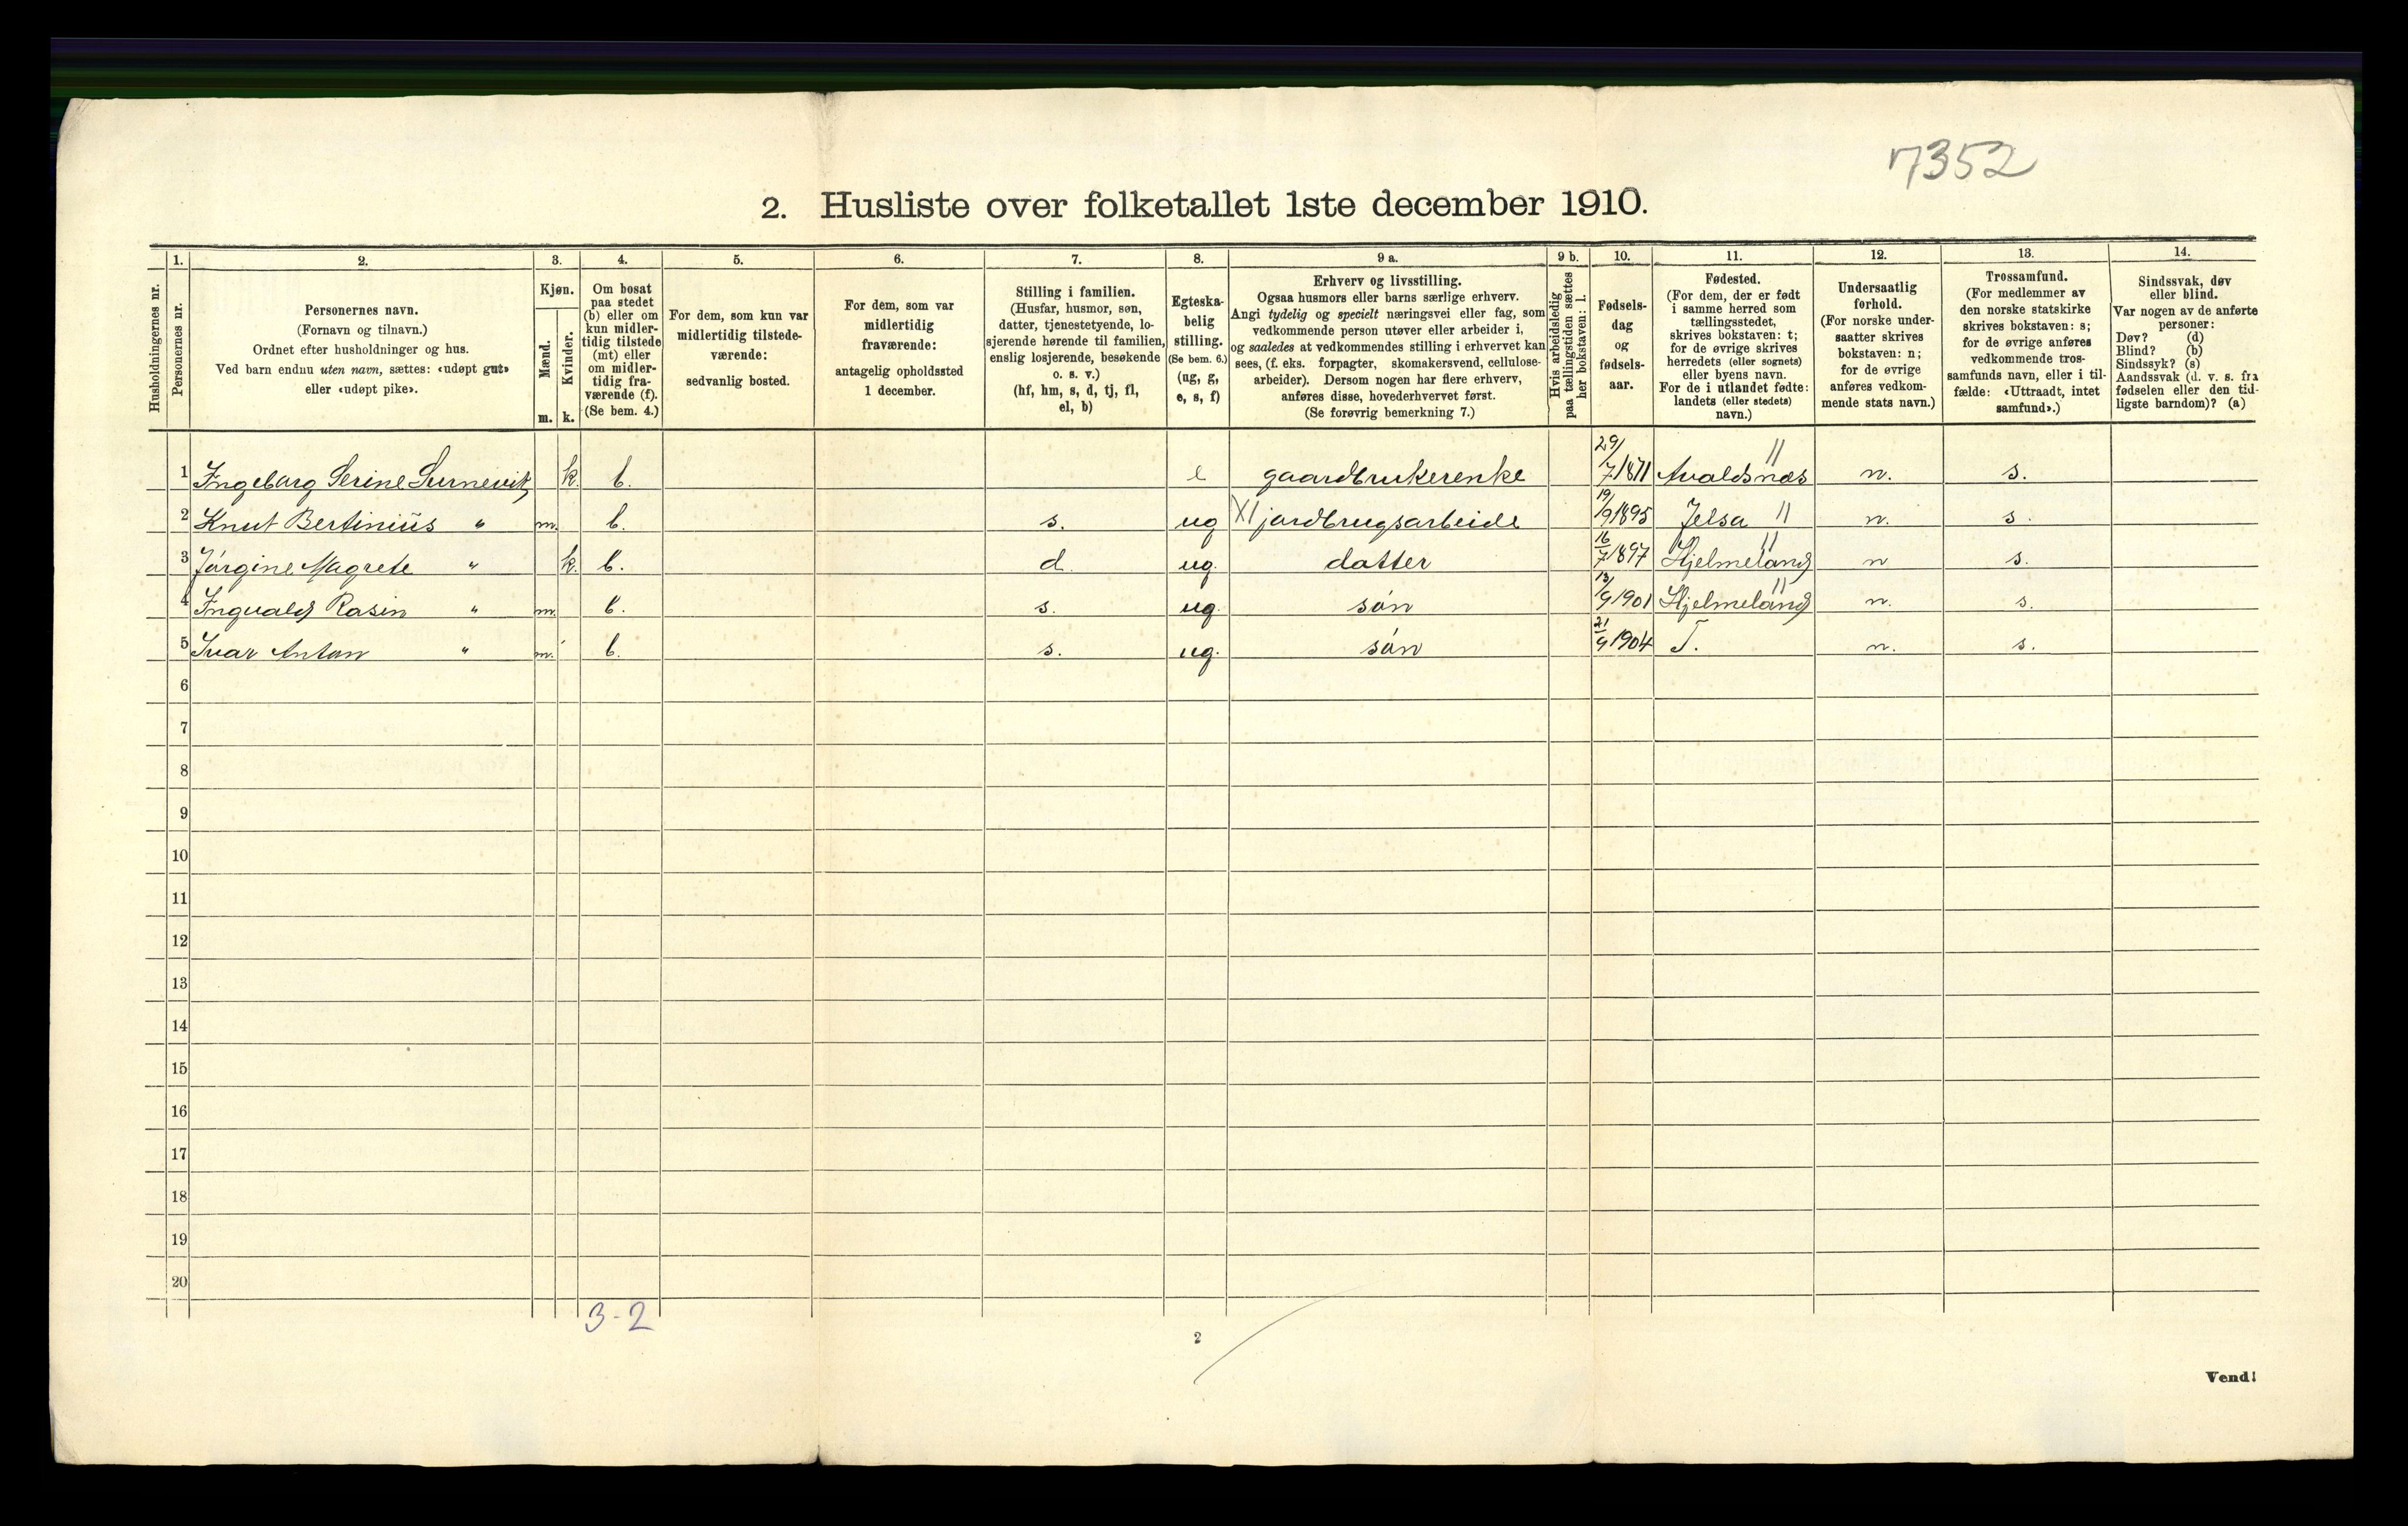 7352
2. Husliste over folketallet 1ste december 1910.
Husholdningernes nr.
1.
Personernes nr.
2.
Personernes navn.
(Fornavn og tilnavn.)
Ordnet efter husholdninger og hus.
Ved barn endnu uten navn, sættes: «udøpt gut»
eller «udøpt pike».
3.
Kjøn.
Mænd.
Kvinder.
m. k.
4.
Om bosat
paa stedet
(b) eller om
kun midler-
tidig tilstede
(mt) eller
om midler-
tidig fra-
værende (f).
(Se bem. 4.)
5.
For dem, som kun var
midlertidig tilstede-
værende:
sedvanlig bosted.
6.
For dem, som var
midlertidig
fraværende:
antagelig opholdssted
1 december.
7.
Stilling i familien.
(Husfar, husmor, søn,
datter, tjenestetyende, lo-
sjerende hørende til familien,
enslig losjerende, besøkende
o. s. v.)
(hf, hm, s, d, tj, fl,
el, b)
8.
Egteska-
belig
stilling.
(Se bem. 6.)
(ug, g,
e, s, f)
9 a.
Erhverv og livsstilling.
Ogsaa husmors eller barns særlige erhverv.
Angi tydelig og specielt næringsvei eller fag, som
vedkommende person utøver eller arbeider i,
og saaledes at vedkommendes stilling i erhvervet kan
sees, (f. eks. forpagter, skomakersvend, cellulose-
arbeider). Dersom nogen har flere erhverv,
anføres disse, hovederhvervet først.
(Se forøvrig bemerkning 7.)
9 b.
Hvis arbeidsledig
paa tællingstiden sættes
her bokstaven: l.
10.
Fødsels-
dag
og
fødsels-
aar.
11.
Fødested.
(For dem, der er født
i samme herred som
tællingsstedet,
skrives bokstaven: t;
for de øvrige skrives
herredets (eller sognets)
eller byens navn.
For de i utlandet fødte:
landets (eller stedets)
navn.)
12.
Undersaatlig
forhold.
(For norske under-
saatter skrives
bokstaven: n;
for de øvrige
anføres vedkom-
mende stats navn.)
13.
Trossamfund.
(For medlemmer av
den norske statskirke
skrives bokstaven: s;
for de øvrige anføres
vedkommende tros-
samfunds navn, eller i til-
fælde: «Uttraadt, intet
samfund».)
14.
Sindssvak, døv
eller blind.
Var nogen av de anførte
personer:
Døv? (d)
Blind? (b)
Sindssyk? (s)
Aandssvak (d. v. s. fra
fødselen eller den tid-
ligste barndom)? (a)
1 Ingeborg Serine Surnevik k. b. e gaardbrukerenke 29/7 1871 Avaldsnæs " n. s.
2 Knut Bertinius " m. b. s. ug XI jordbrugsarbeide 19/9 1895 Jelsa " n. s.
3 Jørgine Magrete " k. b. d ug. datter 16/7 1897 Hjelmeland " n s.
4 Ingvald Rasin " m. b. s. ug. søn 13/9 1901 Hjelmeland " n. s.
5 Ivar Anton " m. b. s. ug. søn 21/9 1904 T. n. s.
6
7
8
9
10
11
12
13
14
15
16
17
18
19
20
3-2
2
Vend!